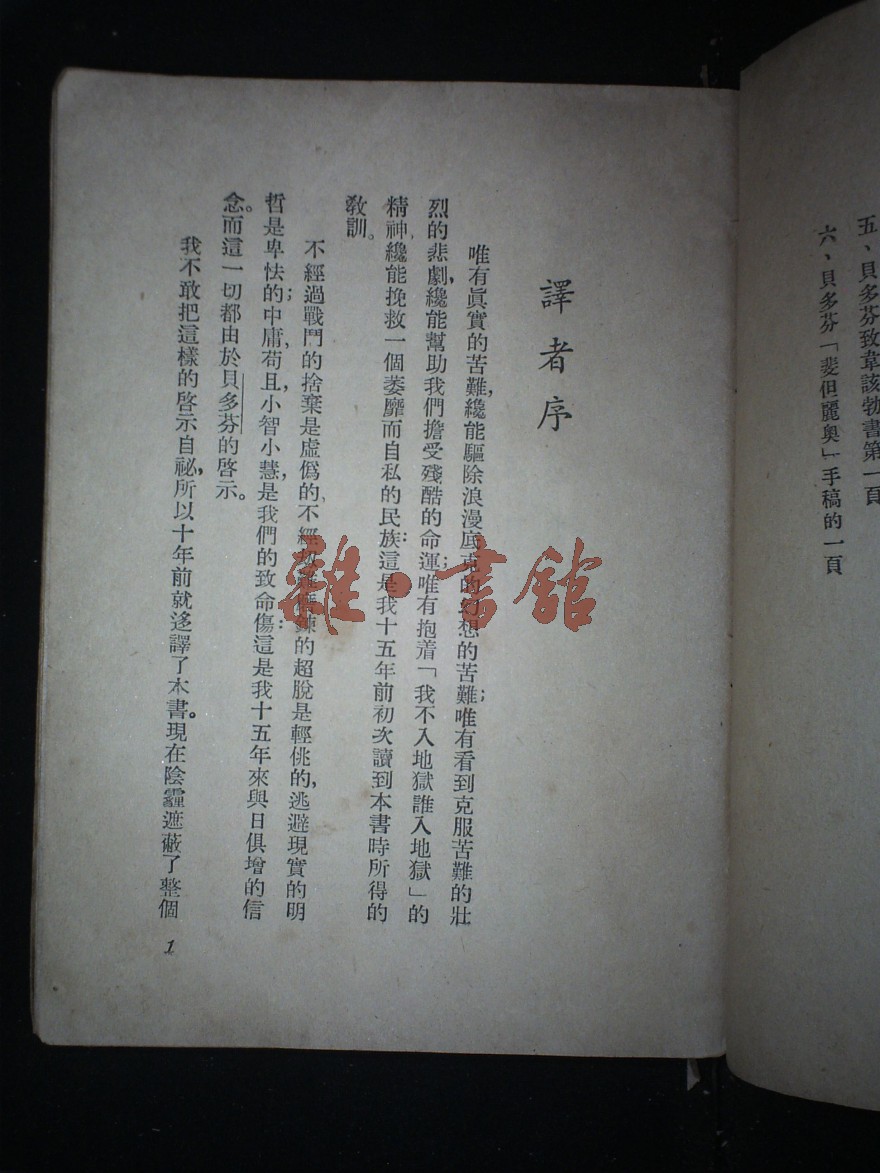 五、貝多芬致韋該勃書第一頁
六、貝多芬「斐但麗奧」手稿的一頁
譯者序
唯有眞實的苦難,纔能驅除浪漫底克的幻想的苦難;唯有看到克服苦難的壯
烈的悲劇,纔能幫助我們擔受殘酷的命運;唯有抱着「我不入地獄誰入地獄」的
精神,纔能挽救一個萎靡而自私的民族:這是我十五年前初次讀到本書時所得的
敎訓。
不經過戰鬥的捨棄是虛僞的,不經劫難磨鍊的超脫是輕佻的,逃避現實的明
哲是卑怯的;中庸,苟且,小智小慧,是我們的致命傷:這是我十五年來與日俱增的信
念。而這一切都由於貝多芬的啓示。
我不敢把這樣的啓示自祕,所以十年前就迻譯了本書。現在陰霾遮蔽了整個
1
雜·書館